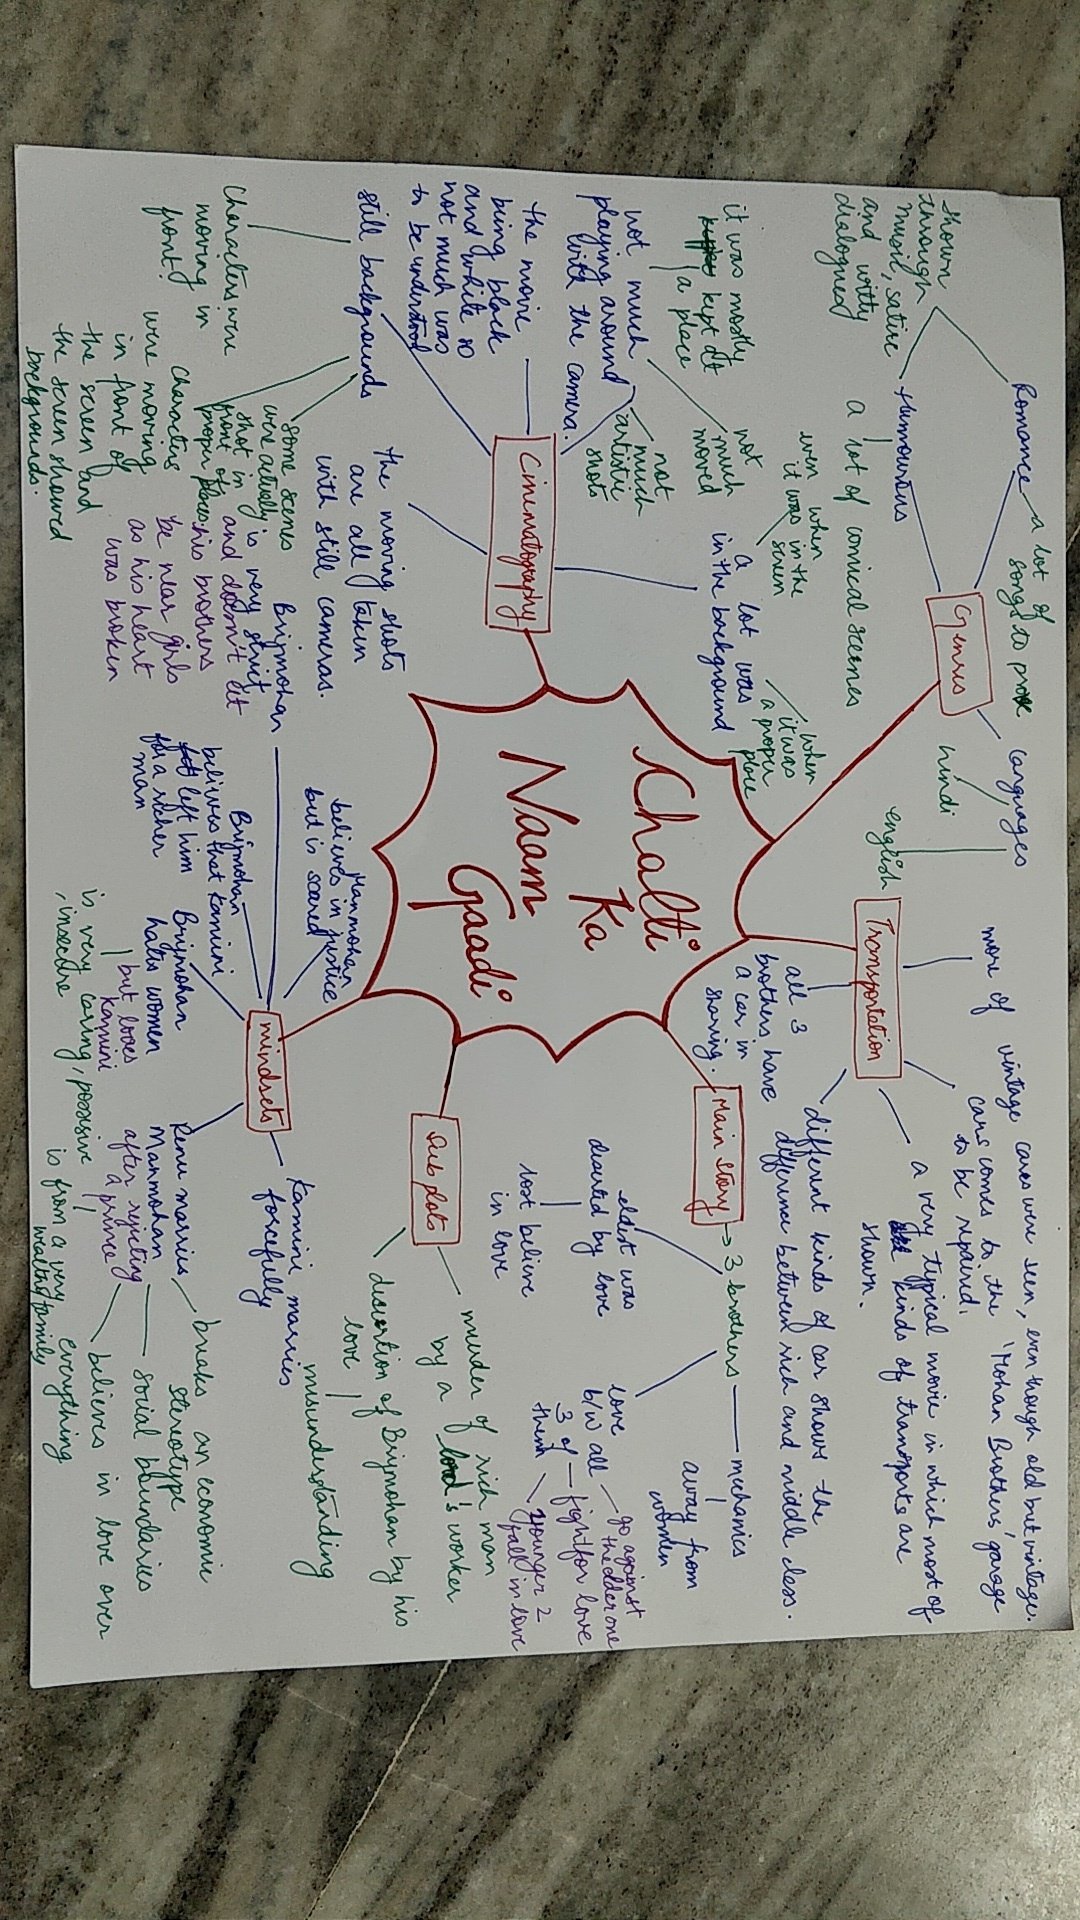 Chalti
Ka
Naam
Gaadi
Genres
Romance
a lot of
songs to
Humourous
shown
through
music, satire
and witty
dialogued
a lot of comical scenes
languages
hindi
english
Transportation
more of vintage cars were seen, even though old but vintage.
cars comes to the "Mohan Brothers' garage
to be repaired.
a very typical movie in which most of
kinds of transport are
shown.
different kinds of car shows the
difference between rich and middle class.
all 3
brothers have
a car in
sharing.
Main story
3 brothers
mechanics
away from
women
eldest was
deserted by love
lost believe
in love
love
b/w all
3 of
them
go against
the elder one
fight for love
younger 2
fall in love
Sub plots
murder of rich man
by a lord's worker
disertion of Brijmohan by his
love
misunderstanding
mindsets
Kamini marries
forcefully
Renu marries
Manmohan
after rejecting
a prince
breaks an economic
stereotype
social boundaries
believes in love over
everything
is from a very
wealthy family
Brijmohan
hates women
but loves
Kamini
is very caring, possesive
, insecure
Brijmohan
believes that Kamini
left him
for a richer
man
Brijmohan
is very strict
and doesn't let
his brothers
be near girls
as his heart
was broken
Manmohan
believes in justice
but is scared
Cinematography
a lot was
in the background
when
it was
a proper
place
even when
it was in the
screen
not much
playing around
with the camera.
it was mostly
kept at
a place
not
much
moved
not
much
artistic
shots
the movie
being black
and white so
not much was
to be understood
still backgrounds
characters were
moving in
front.
some scenes
were actually
shot in
front of
proper places
characters
were moving
in front of
the screen and
the screen showed
backgrounds.
the moving shots
are all taken
with still cameras.